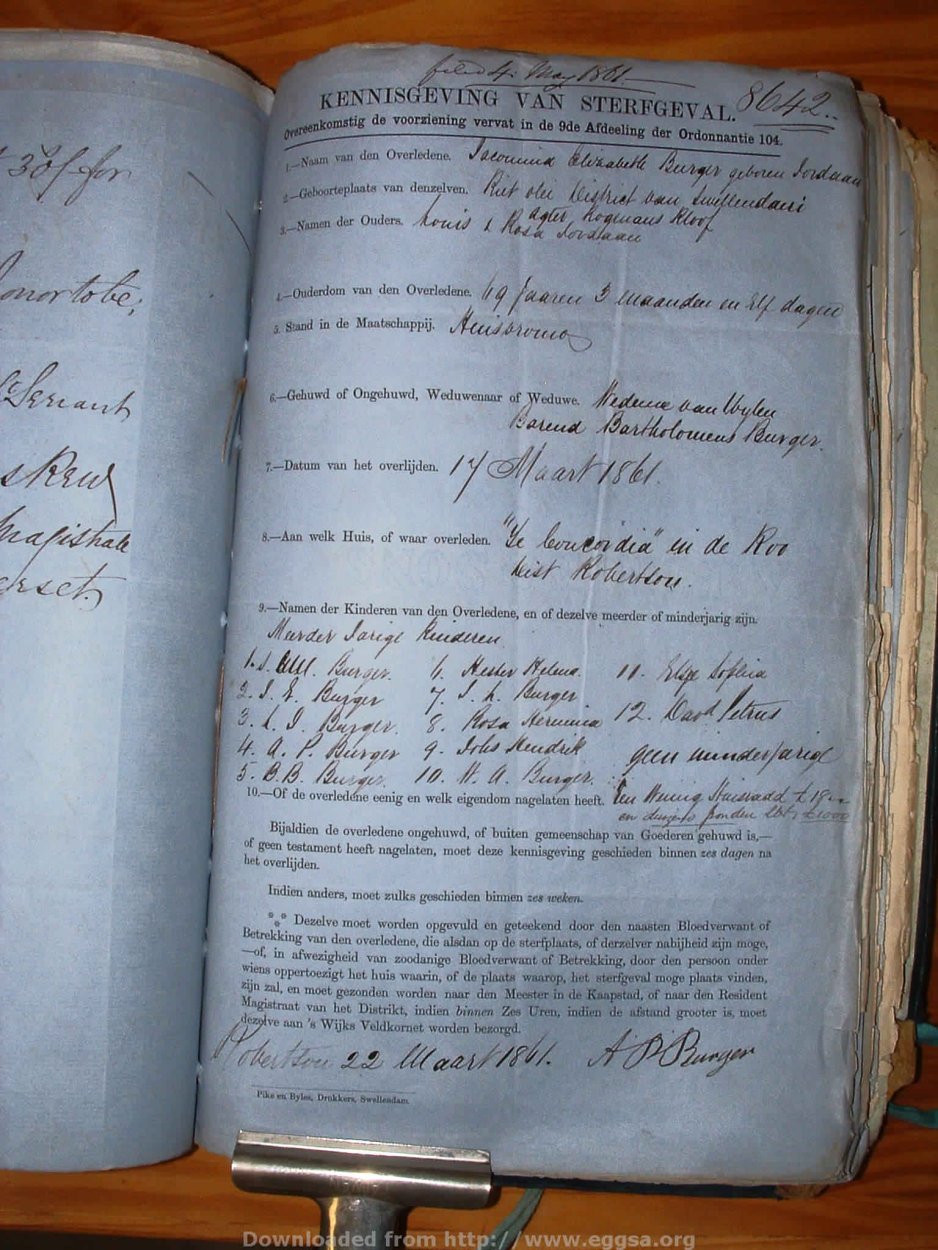 30/ for
onor to be,
Servant
Magistrate
erset
filed 4. May 1861
8642
KENNISGEVING VAN STERFGEVAL.
Overeenkomstig de voorziening vervat in de 9de Afdeeling der Ordonnantie 104.
1.—Naam van den Overledene. Jacomina Elizabeth Burger geboren Jordaan
2.—Geboorteplaats van denzelven. Riet vlei District van Swellendam
agter Kogmans Kloof
3.—Namen der Ouders. Louis & Rosa Jordaan
4.—Ouderdom van den Overledene. 69 Jaaren 3 maanden en Elf dagen
5. Stand in de Maatschappij. Huisvrouw
6.—Gehuwd of Ongehuwd, Weduwenaar of Weduwe. Weduwe van Wylen
Barend Bartholomeus Burger.
7.—Datum van het overlijden. 17 Maart 1861.
8.—Aan welk Huis, of waar overleden. "De Concordia" in de Koo
Dist Robertson.
9.—Namen der Kinderen van den Overledene, en of dezelve meerder of minderjarig zijn.
Meerder Jarige Kinderen
1. J. Burger. 6. Hester Helena. 11. Elsje Sophia
2. J. E. Burger 7. J. L. Burger
3. L. J. Burger. 8. Rosa Hermina 12. David Petrus
4. A. P. Burger 9. Johs Hendrik geen minderjarige
5. B. B. Burger. 10. W. A. Burger.
10.—Of de overledene eenig en welk eigendom nagelaten heeft. Een Weinig Huisraad £18
en ponden £1000
Bijaldien de overledene ongehuwd, of buiten gemeenschap van Goederen gehuwd is,—
of geen testament heeft nagelaten, moet deze kennisgeving geschieden binnen zes dagen na
het overlijden.
Indien anders, moet zulks geschieden binnen zes weken.
*** Dezelve moet worden opgevuld en geteekend door den naasten Bloedverwant of
Betrekking van den overledene, die alsdan op de sterfplaats, of derzelver nabijheid zijn moge,
—of, in afwezigheid van zoodanige Bloedverwant of Betrekking, door den persoon onder
wiens oppertoezigt het huis waarin, of de plaats waarop, het sterfgeval moge plaats vinden,
zijn zal, en moet gezonden worden naar den Meester in de Kaapstad, of naar den Resident
Magistraat van het Distrikt, indien binnen Zes Uren, indien de afstand grooter is, moet
dezelve aan 's Wijks Veldkornet worden bezorgd.
Robertson 22 Maart 1861. A P Burger
Pike en Byles, Drukkers, Swellendam.
Downloaded from http://www.eggsa.org